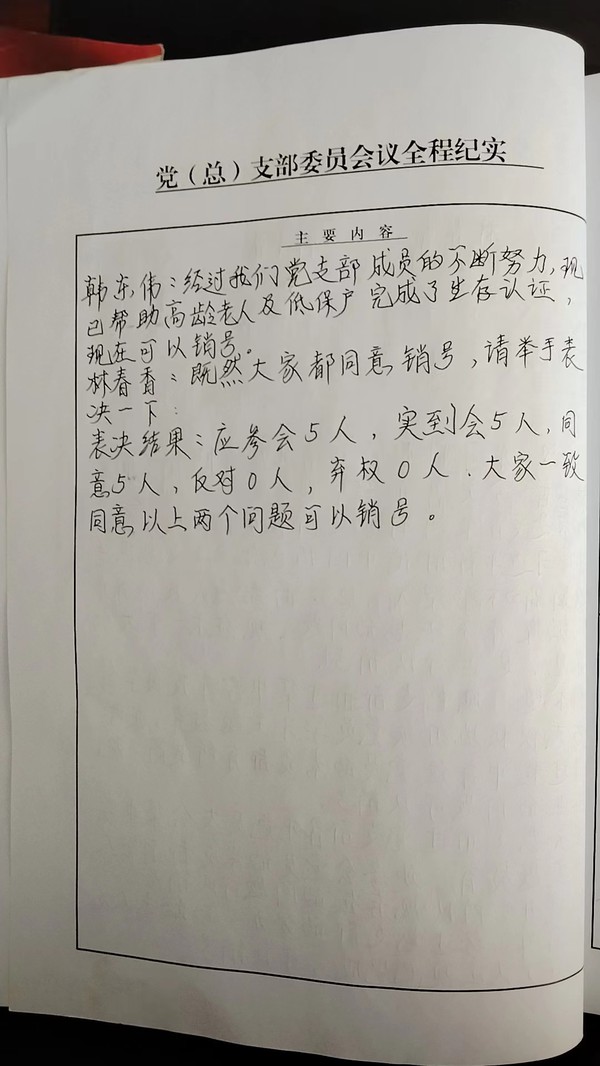 党（总）支部委员会议全程纪实
主要内容
韩东伟：经过我们党支部成员的不断努力，现
已帮助高龄老人及低保户完成了生存认证，
现在可以销号。
林春香：既然大家都同意销号，请举手表
决一下：
表决结果：应参会5人，实到会5人，同
意5人，反对0人，弃权0人．大家一致
同意以上两个问题可以销号。